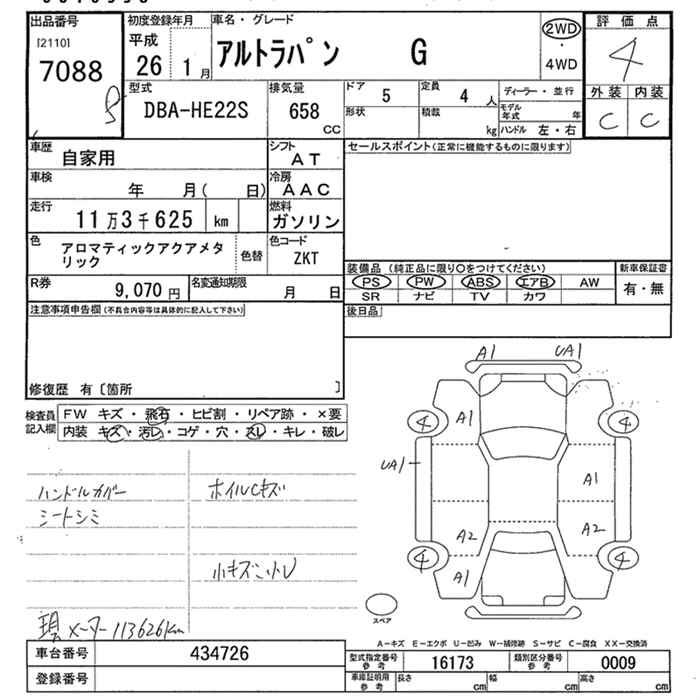 出品番号
[2110]
7088
初度登録年月
平成
26 1月
車名・グレード
アルトラパン G
2WD
・
4WD
評価点
4
外装 内装
C C
型式
DBA-HE22S
排気量
658
CC
ドア
5
定員
4 人
形状
積載
kg
ディーラー・並行
モデル年式 年
ハンドル 左・右
車歴
自家用
シフト
AT
車検
年 月( 日)
冷房
AAC
走行
11万3千625 km
燃料
ガソリン
色
アロマティックアクアメタ
リック
色替
色コード
ZKT
R券
9,070円
名変通知期限
月 日
セールスポイント(正常に機能するものに限ります)
装備品 (純正品に限り○をつけてください)
PS PW ABS エアB AW
SR ナビ TV カワ
新車保証書
有・無
後日品
注意事項申告欄(不具合内容等は具体的に記入して下さい)
修復歴 有〔箇所 〕
検査員
記入欄
FW キズ・飛石・ヒビ割・リペア跡・×要
内装 キズ・汚レ・コゲ・穴・スレ・キレ・破レ
ハンドルカバー
シートシミ
ホイルCキズ
小キズ小凹
現メーター113626km
A1 UA1
4 A1 4
UA1 A1
A2 A2
4 A1 4
スペア
A-キズ E-エクボ U-凹み W-補修跡 S-サビ C-腐食 XX-交換済
車台番号
434726
登録番号
型式指定番号
参考
16173
類別区分番号
参考
0009
車庫証明用
参考
長さ cm
幅 cm
高さ cm